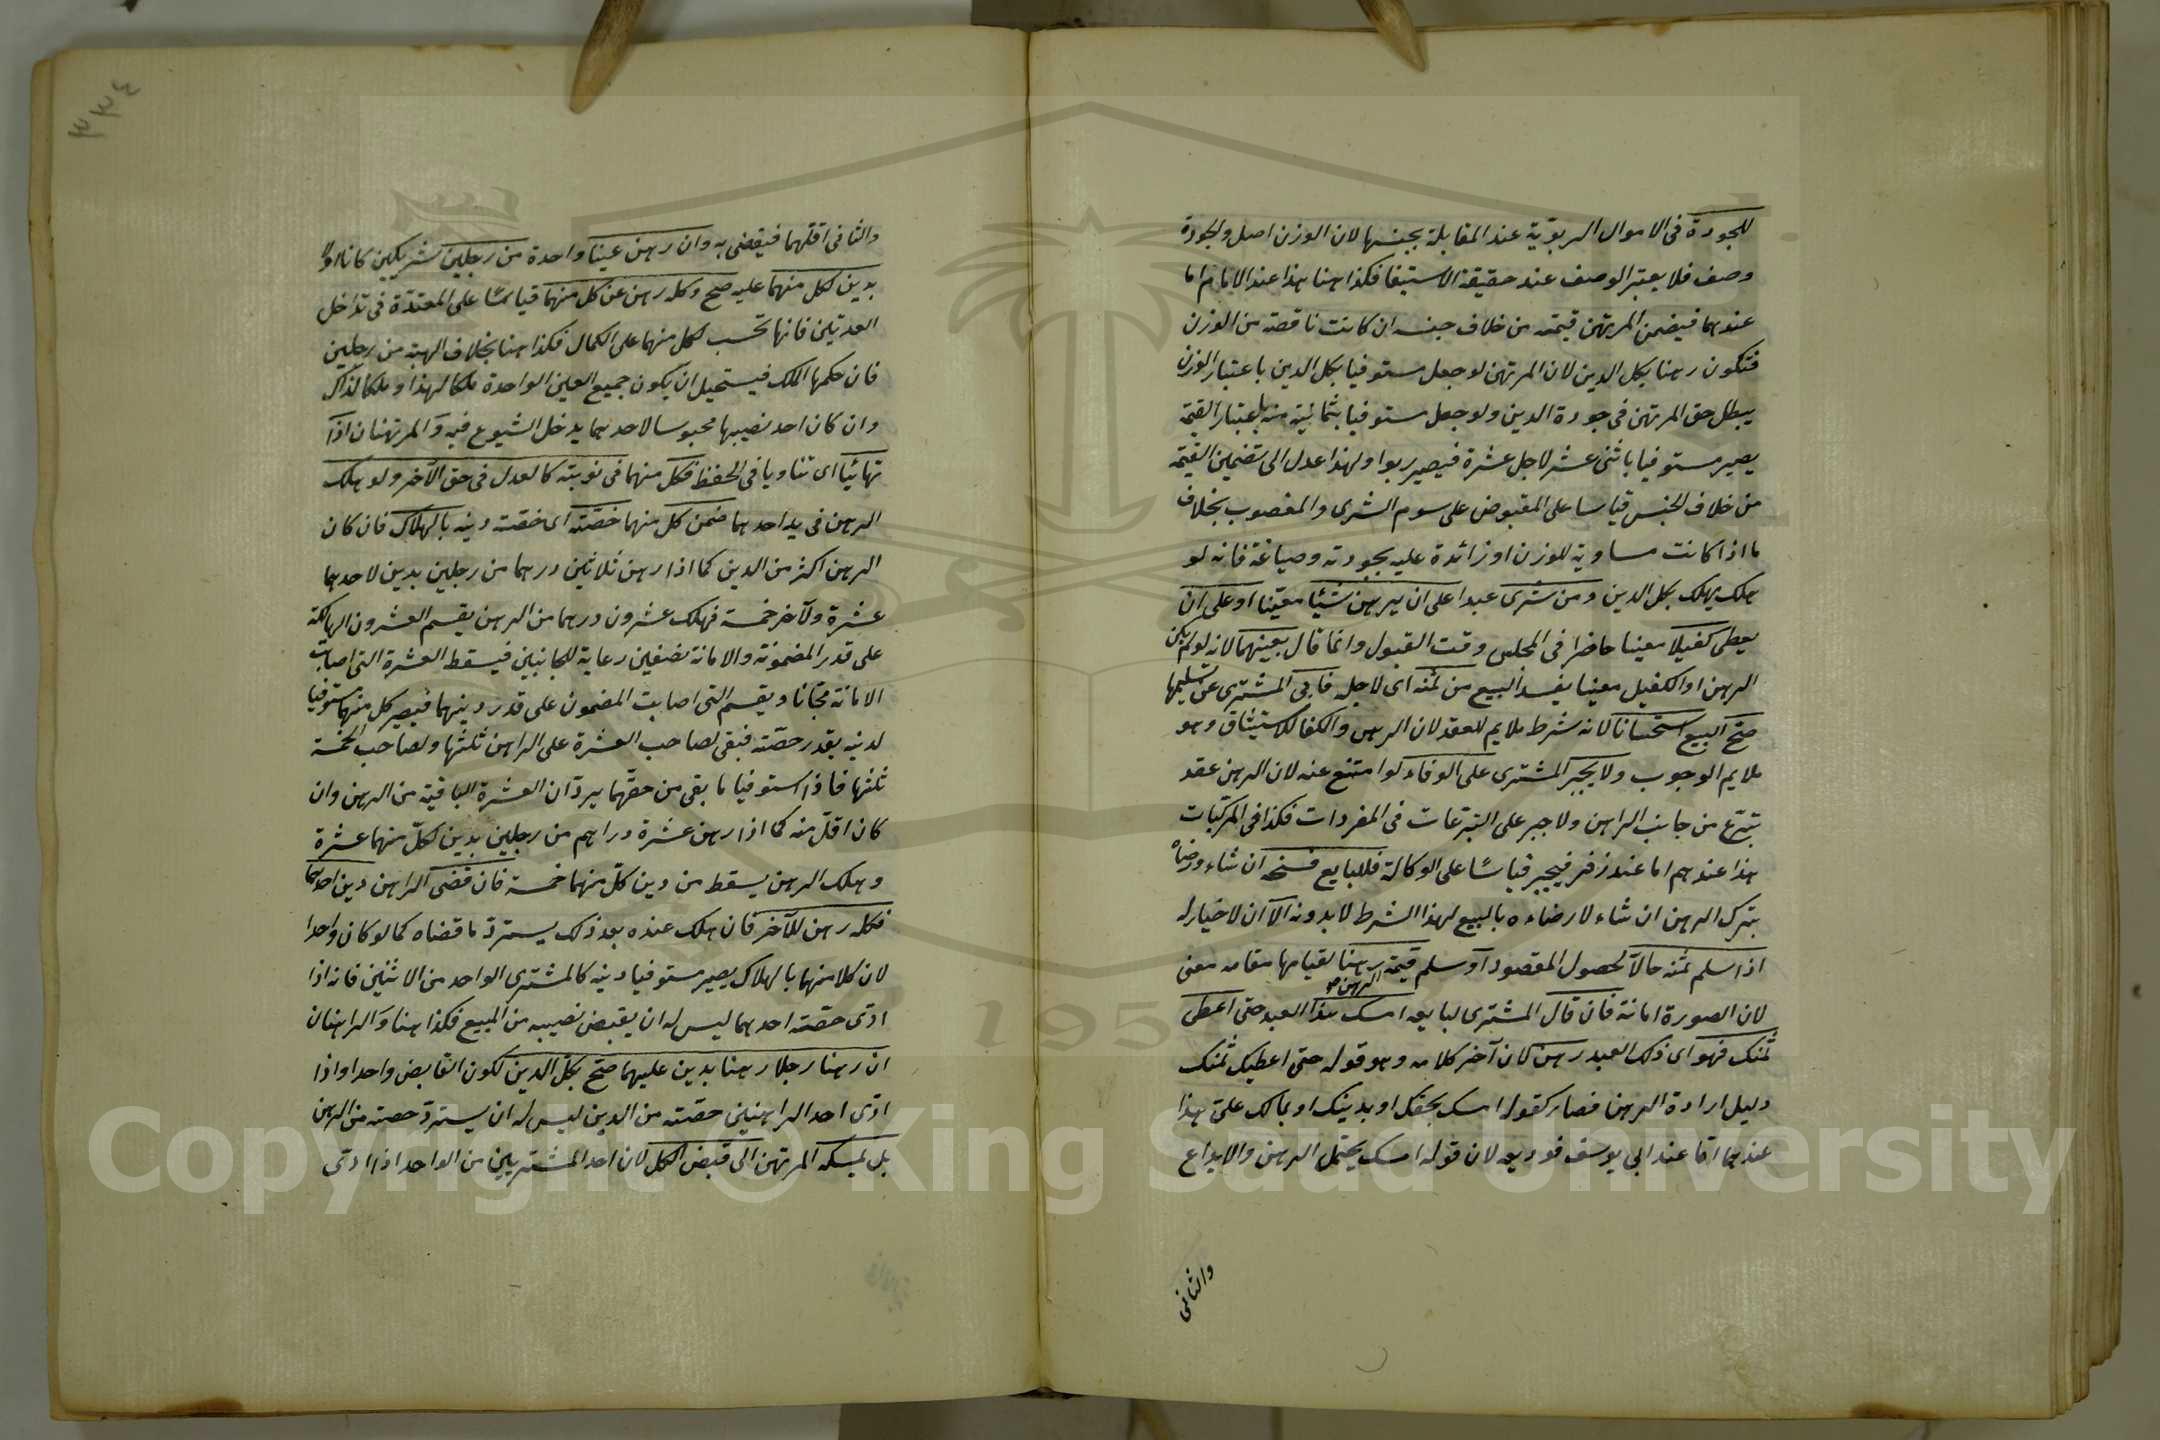 للجودة فى الاموال الربوية عند المقابلة بجنسها لان الوزن اصل والجودة
وصف فلا يعتبر الوصف عند حقيقة الاستيفا فكذا هنا هذا عند الامام اما
عندهما فيضمن المرتهن قيمته من خلاف جنسه ان كانت ناقصة من الوزن
فتكون رهنا بكل الدين لان المرتهن لو جعل مستوفيا بكل الدين باعتبار الوزن
يبطل حق المرتهن فى جودة الدين ولو جعل مستوفيا بثمانية منه باعتبار القيمة
يصير مستوفيا باثنى عشر لاجل عشرة فيصير ربوا ولهذا عدل الى تضمين القيمة
من خلاف الجنس قياسا على المقبوض على سوم الشرى والمغصوب بخلاف
ما اذا كانت مساوية للوزن او زائدة عليه بجودته وصياغة فانه لو
هلك يهلك بكل الدين ومن شرى عبدا على ان يرهن شيئا معينا او على ان
يعطى كفيلا معينا حاضرا فى المجلس وقت القبول وانما قال بعينهما لانه لو لم يكن
الرهن او الكفيل معينا يفسد البيع من ثمنه اى لاجله فابى المشترى عن تسليمها
صح البيع استحسانا لانه شرط ملايم للعقد لان الرهن والكفا للاستيثاق وهو
ملايم الوجوب ولا يجبر المشترى على الوفاء لوا متنع عنه لان الرهن عقد
تبرع من جانب الراهن ولا جبر على التبرعات فى المفردات فكذا فى المركبات
هذا عندهم اما عند زفر فيجبر قياسا على الوكالة فللبايع فسخه ان شاء ورضاه
بترك الرهن ان شاء لا رضاءه بالبيع لهذا الشرط لا بدونه الا ان لا خيار له
اذا سلم ثمنه حالا لحصول المقصود او سلم قيمة رهنا لقيامها مقامه معنى
الرهن صح
لان الصورة امانة فان قال المشترى لبايعه امسك هذا العبد حتى اعطى
ثمنك فهو اى ذلك العبد رهن لان آخر كلامه وهو قوله حتى اعطيك ثمنك
دليل ارادة الرهن فصار كقوله امسك بحقك او بدينك او بمالك على هذا
عندهما اما عند ابى يوسف فوديعه لان قوله امسك يحتمل الرهن والايداع
والثانى
٣٣٤
والثانى اقلهما فيقضى به وان رهن عينا واحدة من رجلين شريكين كانا او لا
بدين لكل منهما عليه صح وكله رهن عن كل منهما قياسا على المعتدة فى تداخل
العدتين فانها تحسب لكل منهما على الكمال فكذا هنا بخلاف الهبة من رجلين
فان حكمها الملك فيستحيل ان يكون جميع العين الواحدة ملكا لهذا وملكا لذاك
وان كان احد نصيبها محبوسا لاحدهما يدخل الشيوع فيه والمرتهنان اذا
تهائيا اى تناوبا فى الحفظ فكل منهما فى نوبته كالعدل فى حق الآخر ولو هلك
الرهن فى يد احدهما ضمن كل منهما حصته اى حصته دينه بالهلاك فان كان
الرهن اكثر من الدين كما اذا رهن ثلاثين درهما من رجلين بدين لاحدهما
عشرة ولآخر خمسة فهلك عشرون درهما من الرهن يقسم العشرون الهالكة
على قدر المضمونة والامانة نصفين رعاية للجانبين فيسقط العشرة التى اصابت
الامانة مجانا ويقسم التى اصابت المضمون على قدر دينهما فيصير كل منهما مستوفيا
لدينه بقدر حصته فبقى لصاحب العشرة على الراهن ثلثها ولصاحب الخمسة
ثلثها فاذا استوفيا ما بقى من حقهما يردان العشرة الباقية من الرهن وان
كان اقل منه كما اذا رهن عشرة دراهم من رجلين بدين لكل منهما عشرة
وهلك الرهن يسقط من دين كل منهما خمسة فان قضى الراهن دين احدهما
فكله رهن للآخر فان هلك عنده بعد ذلك يسترد ما قضاه كما لو كان واحدا
لان كلا منهما بالهلاك يصير مستوفيا دينه كالمشترى الواحد من الاثنين فانه اذا
ادى حصته احدهما ليس له ان يقبض نصيبه من المبيع فكذا هنا والراهنان
ان رهنا رجلا رهنا بدين عليهما صح بكل الدين لكون القابض واحدا واذا
ادى احد الراهنين حصته من الدين ليس له ان يسترد حصته من الرهن
بل يمسكه المرتهن الى قبض الكل لان احد المشتريين من الواحد اذا ادى
Copyright © King Saud University
1957